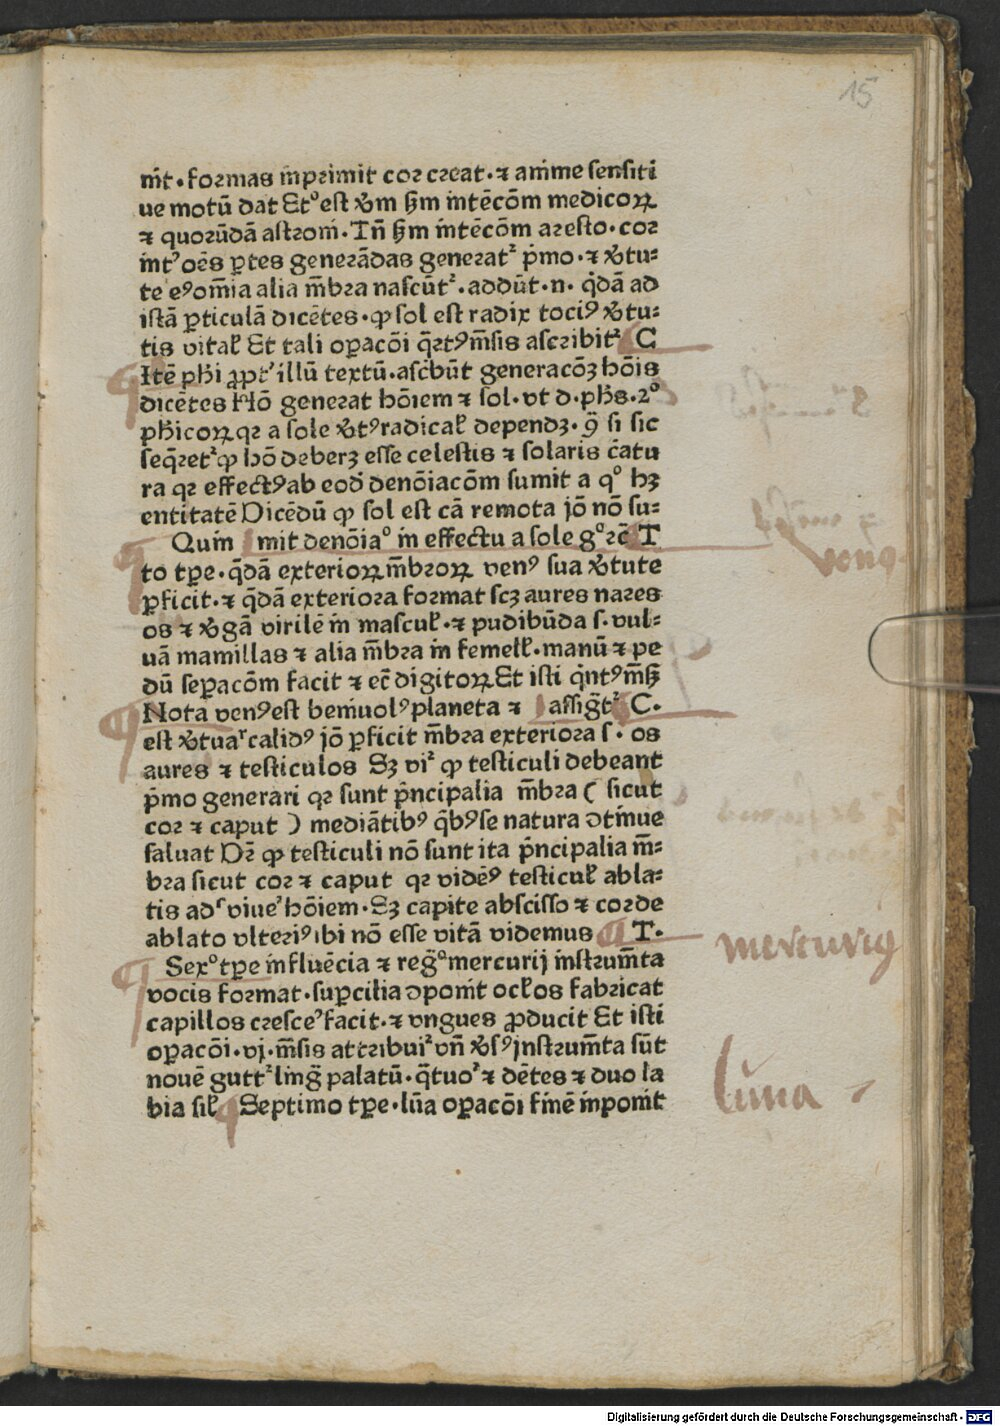 15
mt̄·formas īnprimit cor creat·⁊ anime sensiti
ue motū dat Etº est v̾m ẜm intēcōm medicoꝝ
⁊ quorūdā astrom̄·Tn̄ ẜm intēcōm aresto·cor
int' oēs ꝑtes generādas generatᷣ p̄mo·⁊ v̾tu⸗
te eꝰ om̄ia alia m̄bra nascūtᷣ·addūt·n·q̇dā ad
istā ꝑticulā dicētes·ꝙ sol est radix tociꝰ v̾tu⸗
tis vital̵ Et tali oꝑacōi q̄rtꝰ m̄sis ascribitᷣ C
Itē ph̄i ꝓpt' illū textū·ascbūt generacōꝫ hōis
dicētes Hō generat hōiem ⁊ sol·vt d·ph̄s·2º
ph̄icoꝝ qꝛ a sole v̾tꝰ radical̵ dependꝫ·ꝯ̄ si sic
seq̄retᷣ ꝙ hō deberꝫ esse celestis ⁊ solaris c̄atu
ra qꝛ effectꝰ ab eod̄ denōiacōm sumit a qº hꝫ
entitatē Dicēdū ꝙ sol est cā remota iō nō su⸗
Quin mit denōiaº in effectu a sole gº ꝛc̄ T
to tꝑe·q̄dā exterioꝝ m̄broꝝ venꝰ sua v̾tute
ꝑficit·⁊ q̄dā exteriora format scꝫ aures nares
os ⁊ v̾gā virilē in mascul̵·⁊ pudibūda s·vul⸗
uā mamillas ⁊ alia m̄bra in femell̵·manū ⁊ pe
dū seꝑacōm facit ⁊ ec̄ digitoꝝ Et isti q̇ntꝰ m̄ẜ
Nota venꝰ est beniuolꝰ planeta ⁊ assigt̄ᷣ C·
est v̾tuaᷣ calidꝰ iō ꝑficit m̄bra exteriora s·os
aures ⁊ testiculos Sꝫ viᷣ ꝙ testiculi debeant
p̄mo generari qꝛ sunt p̄ncipalia m̄bra ( sicut
cor ⁊ caput ) mediātibꝰ q̇bꝰ se natura ꝯtinue
saluat Dꝛ̄ ꝙ testiculi nō sunt ita p̄ncipalia m̄⸗
bra sicut cor ⁊ caput qꝛ videmꝰ testicul̵ abla⸗
tis adᷣ viue' hōiem·Sꝫ capite absciso ⁊ corde
ablato vlteriꝰ ibi nō esse vitā videmus T·
Sexº tꝑe influēcia ⁊ regº mercurij instrum̄ta
vocis format·suꝑcilia ꝯponit ocl̵os fabricat
capillos cresce' facit·⁊ vngues ꝓducit Et isti
oꝑacōi·vj·m̄sis attribuiᷣ vn̄ v̾sꝰ instrum̄ta sūt
nouē guttᷣ ling̅ palatū·q̄tuoᷣ ⁊ dētes ⁊ duo la
bia sil̵ Septimo tꝑe·lūa oꝑacōi finē inponit
venꝰ
mercuriꝰ
luna
Digitalisierung gefördert durch die Deutsche Forschungsgemeinschaft · DFG